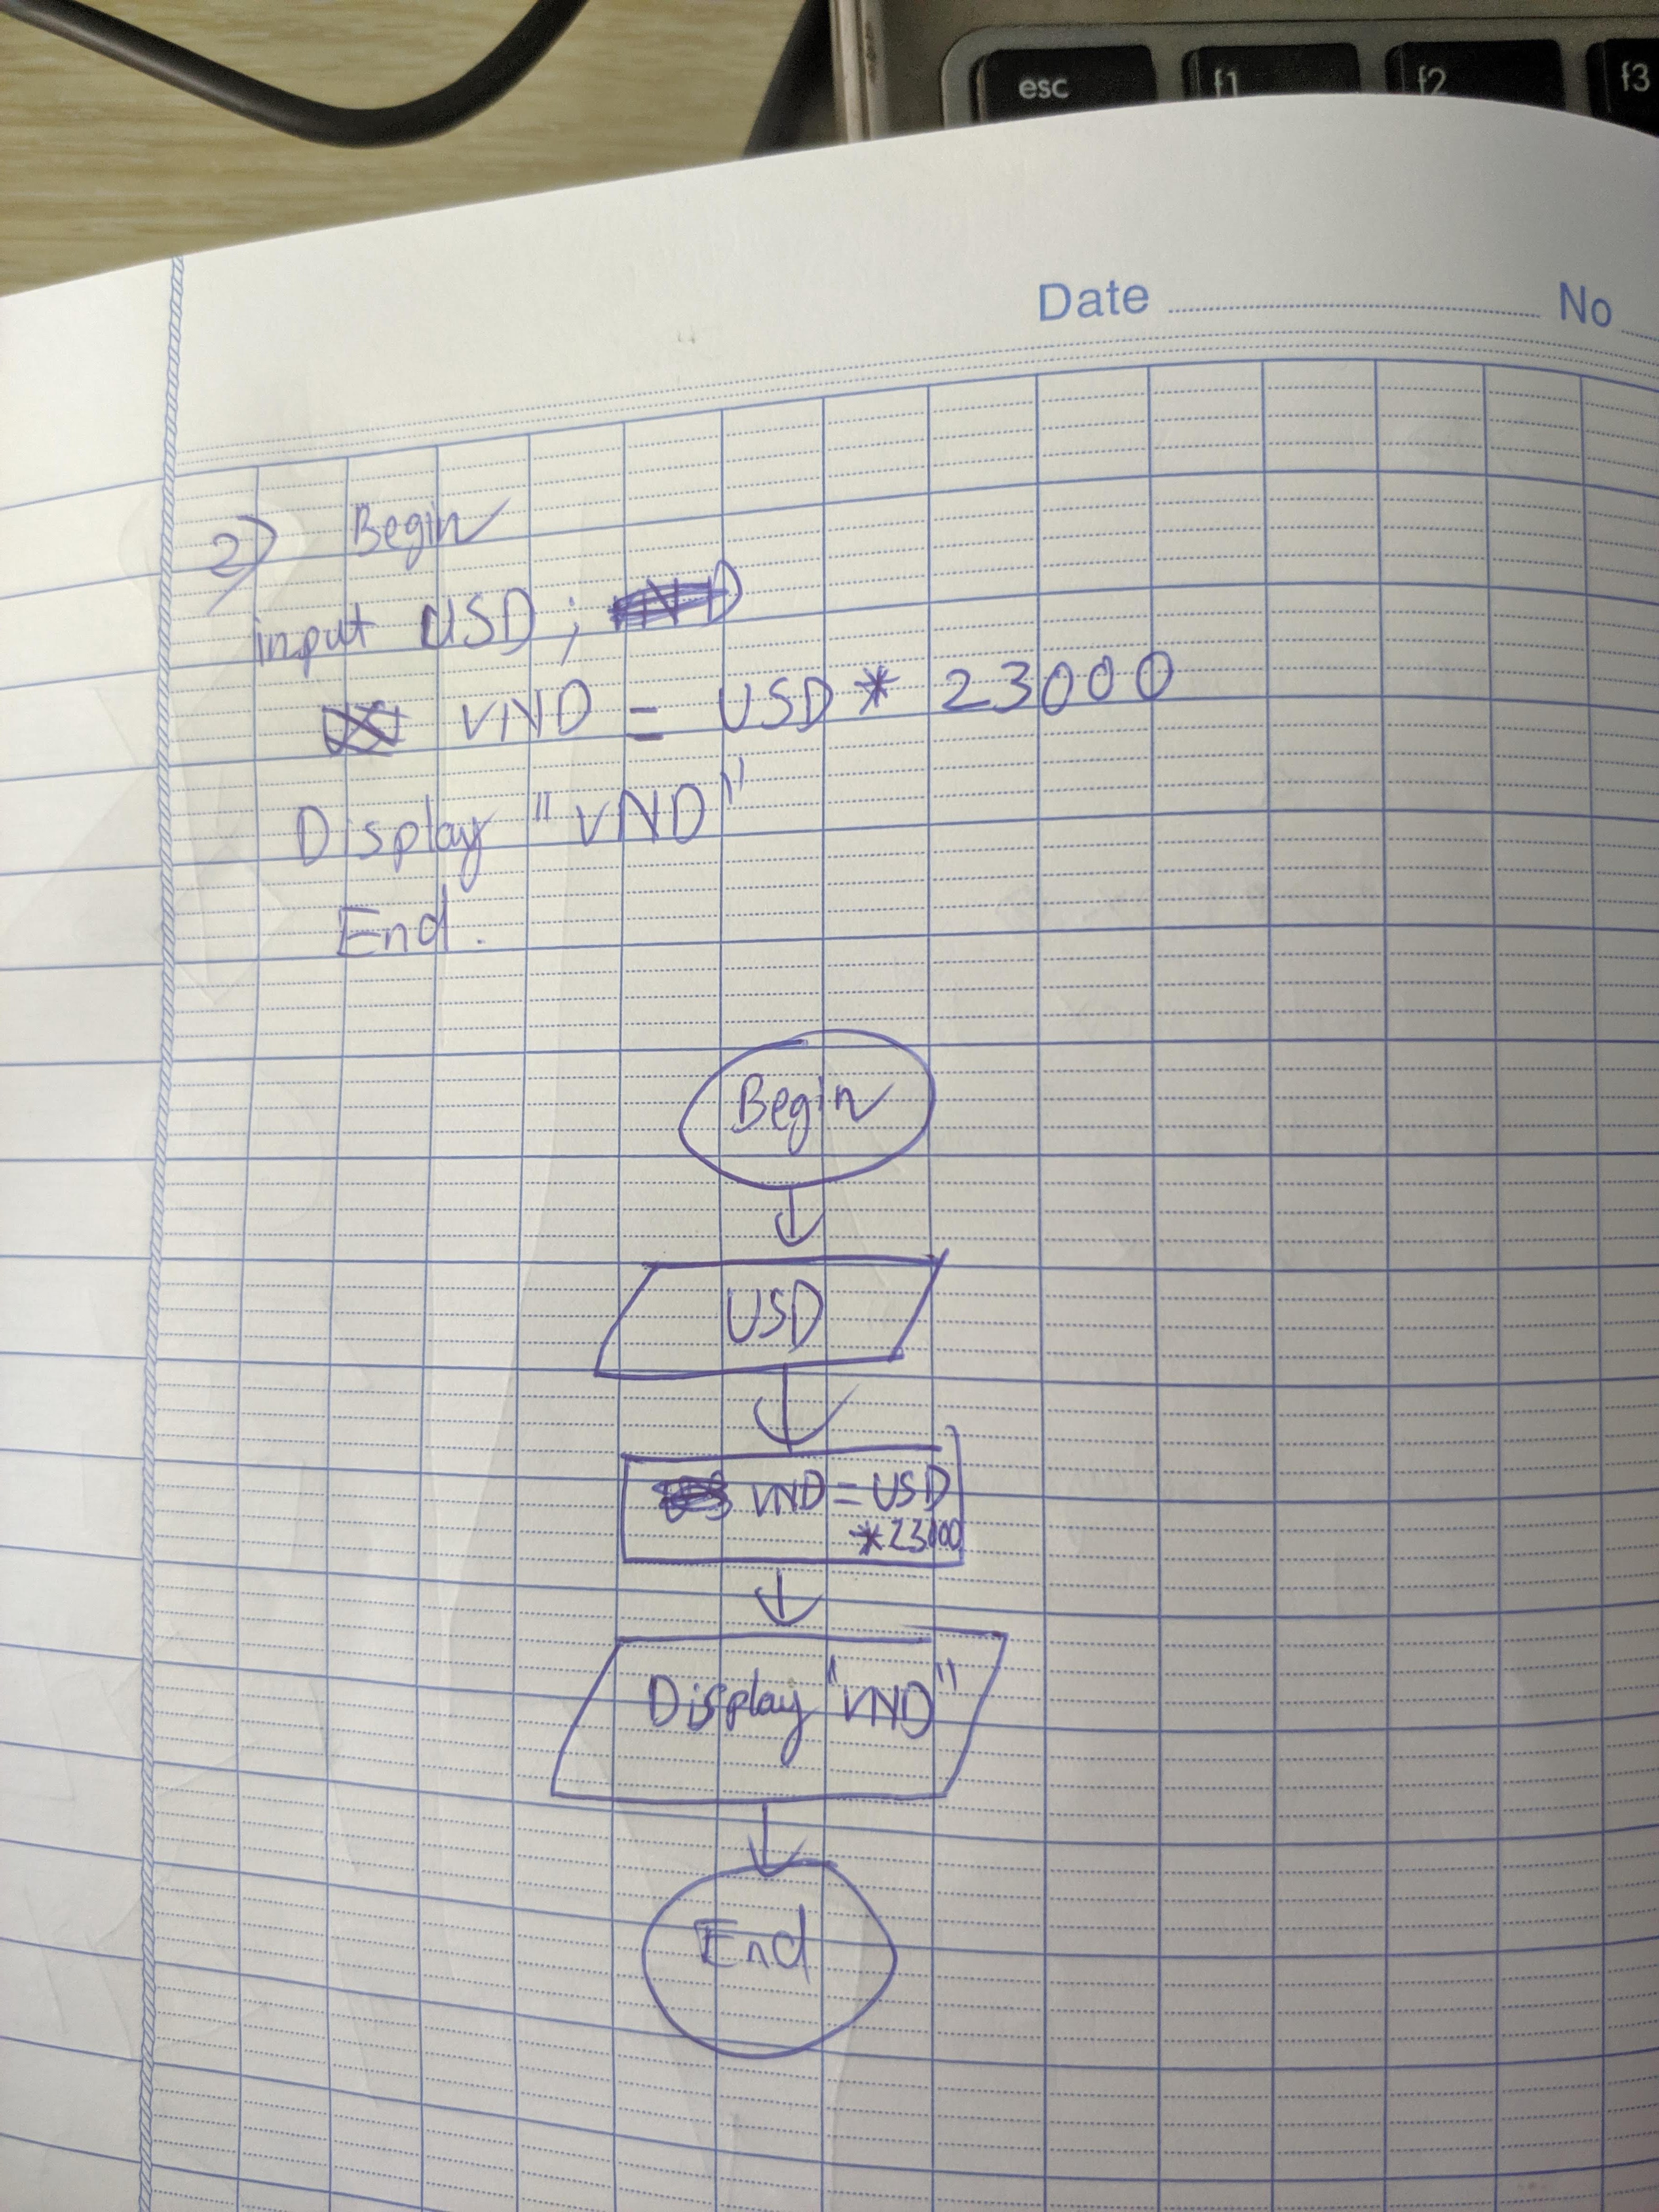 esc f1 f2 f3
Date No
2) Begin
input USD;
VND = USD * 23000
Display "VND"
End.
Begin
USD
VND = USD
* 23000
Display "VND"
End